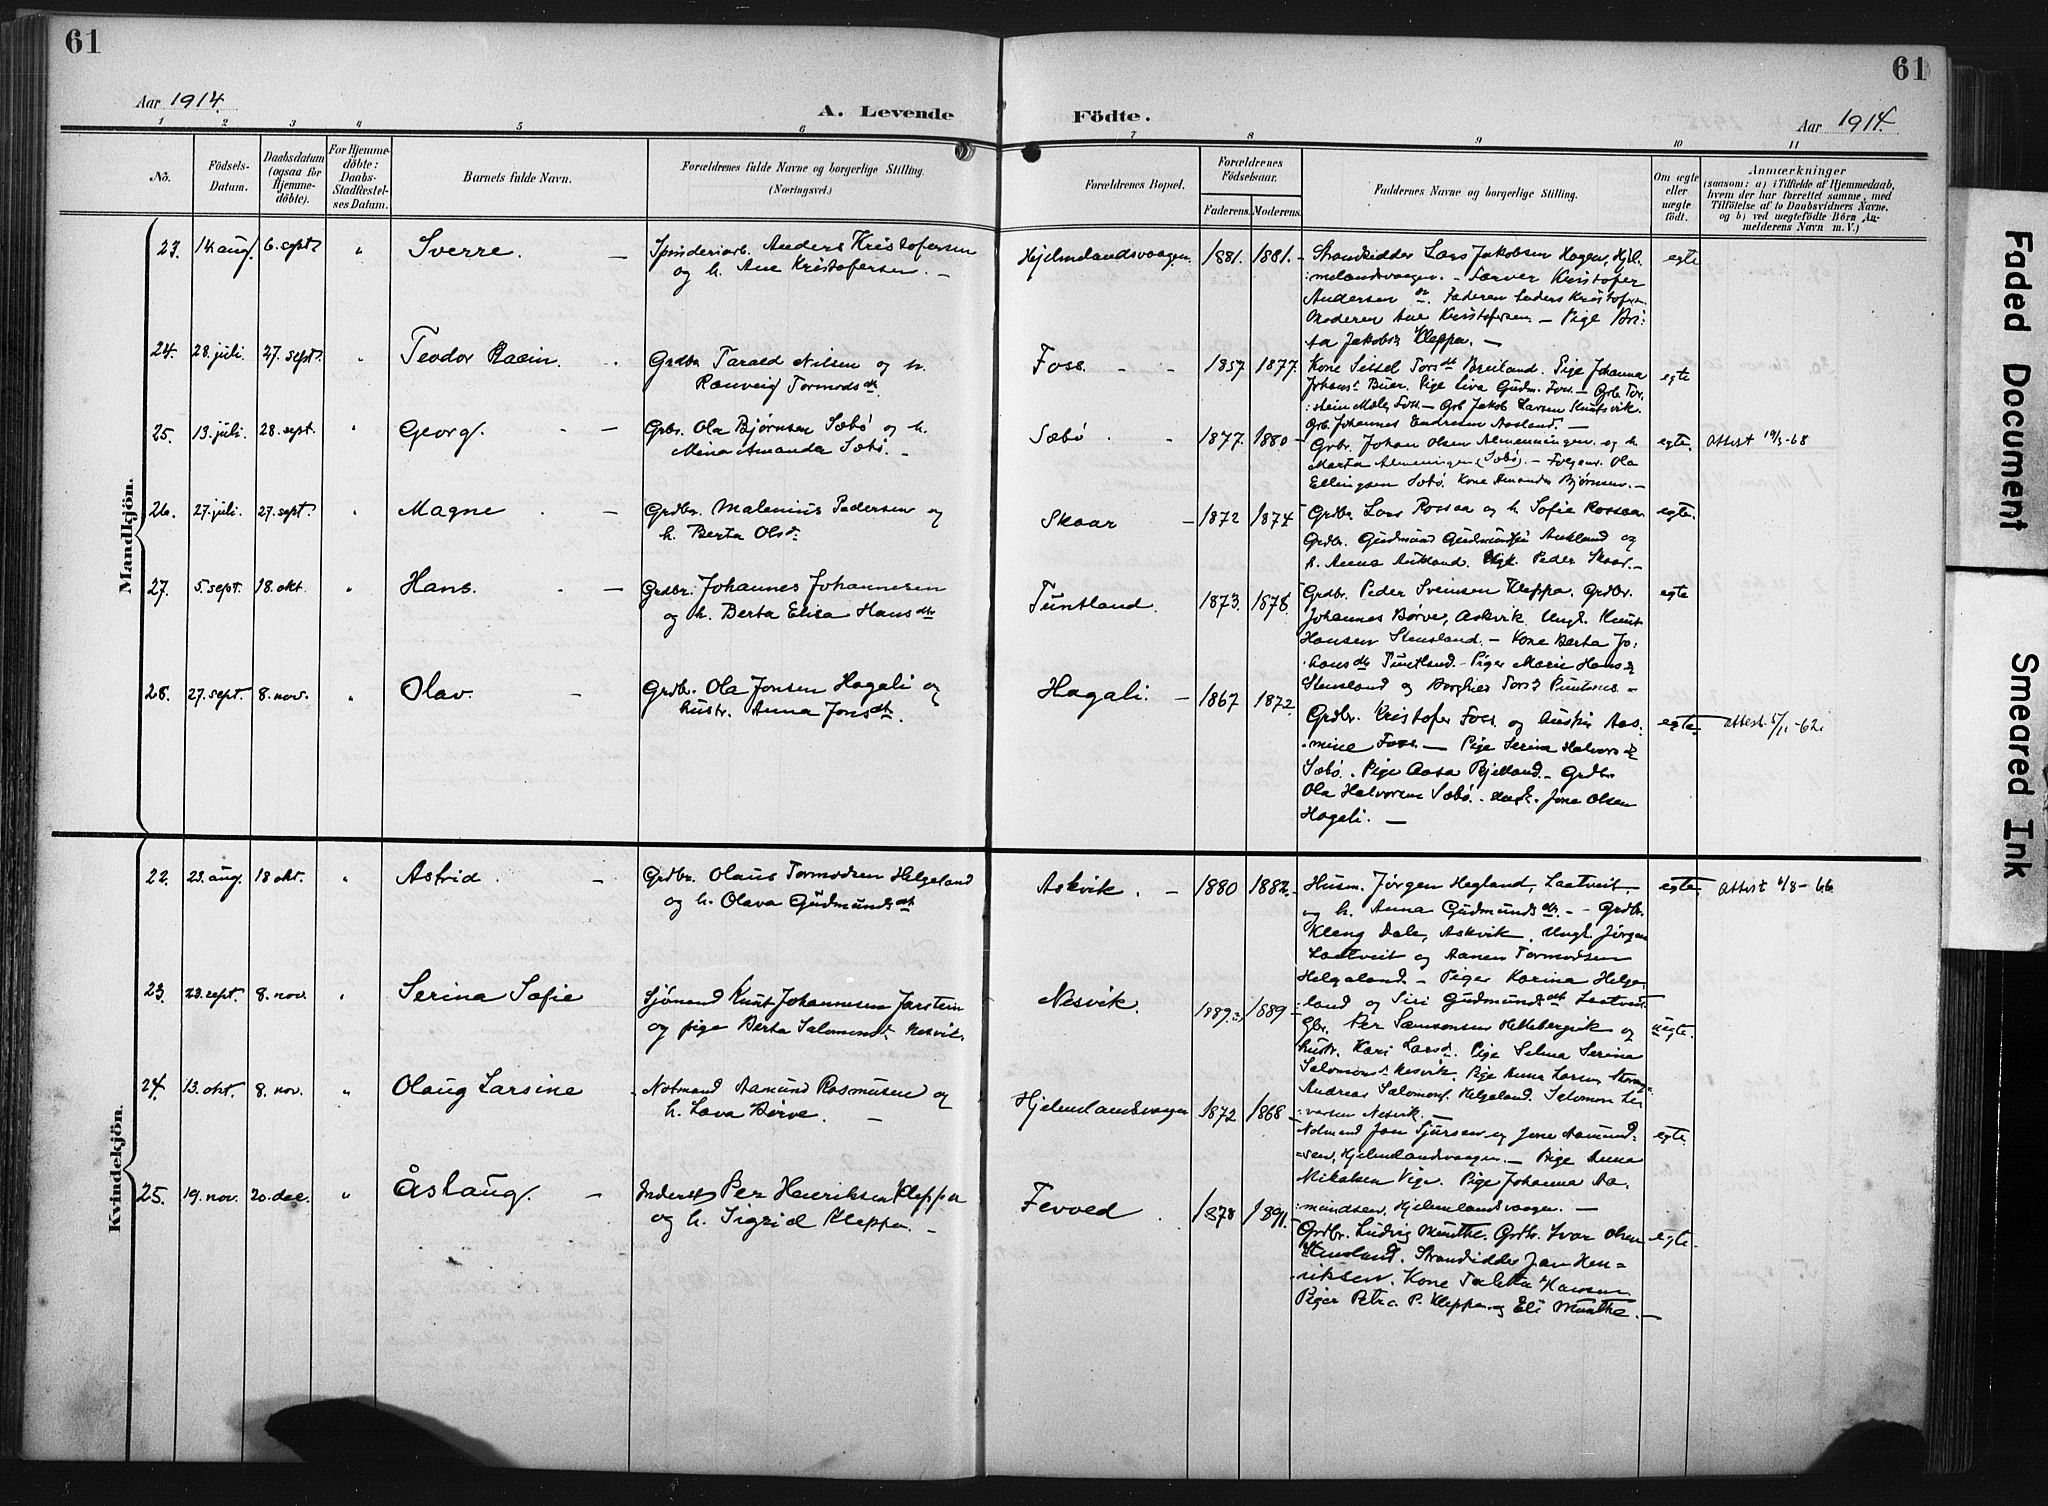 61
61
Aar 1914.
A. Levende
Födte.
Aar 1914.
1 2 3 4 5 6 7 8 9 10 11
No.
Födsels-Datum.
Daabsdatum (ogsaa for Hjemmedöbte).
For Hjemmedöbte: Daabs-Stadfæstelses Datum.
Barnets fulde Navn.
Forældrenes fulde Navne og borgerlige Stilling.
(Næringsvei.)
Forældrenes Bopæl.
Forældrenes Födselsaar.
Faderens. Moderens.
Faddernes Navne og borgerlige Stilling.
Om ægte eller uægte födt.
Anmærkninger
(saasom: a) i Tilfælde af Hjemmedaab,
hvem der har forrettet samme, med
Tilföielse af to Daabsvidners Navne.
og b) ved uægtefödte Börn An-
melderens Navn m. V.)
Mandkjön.
23. 14 aug. 6. sept. " Sverre. —
Spinderiarb. Anders Kristofersen
og h. Ane Kristofersen. —
Hjelmlandsvaagen. 1881. 1881. —
Strandsidder Lars Jakobsen Hagen, Hjel-
melandsvaagen. — Farver Kristofer
Andersen
Faderen Anders Kristofersen
Moderen Ane Kristofersen — Pige Bri-
ta Jakobsd. Kleppa. —
egte
24. 28. juli. 27. sept. " Teodor Racin.
Grdbr. Tarald Nilsen og h.
Rannveig Tormodsdtr.
Foss. 1857 1877.
Kone Sissel Torsdt Breiland. Pige Johanna
Johanst. Buer. Pige Liva Gudm. Foss. — Grb Tor-
stein Foss — Grb Jakob Larsen Knutsvik.
Grb. Johannes Endresen Aasland. —
egte
25. 13. juli. 28. sept. " Georg.
Grbr. Ola Bjørnsen Sæbø og h.
Mina Amanda Sæbø. —
Sæbø 1877. 1880 —
Grbr. Johan Olsen Almenningen og h.
Marta Almeningen (Sæbø). — Ola
Ellingsen Sæbø. Kone Amanda Bjørnsen. —
egte. Attest 19/3-68
26. 27. juli. 27. sept. " Magne —
Grdbr. Malenius Pedersen og
h. Berta Olsd.
Skaar — 1872 1874
Grdbr. Lars Rossaa og h. Sofie Rossaa
Grdbr. Gudmund Gudmundsen Aukland og
h. Anna Aukland. Ungk. Peder Skaar. —
egte.
27. 5. sept. 18. okt. " Hans. —
Grdbr. Johannes Johannesen
og h. Berta Elisa Hansdtr
Tuntland. 1873. 1878.
Grdbr. Peder Sveinsen Kleppa. Grdbr.
Johannes Børve, Askvik. Ungk. Knut
Hansen Stensland. — Kone Berta Jo-
hansdt. Tuntland. — Piger Marie Hansd.
Stensland og Borghild Torsd.
egte
28. 27. sept. 8. nov. " Olav. —
Grdbr. Ola Jonsen Hagali og
hustr. Anna Jonsdt.
Hagali. — 1867 1872.
Grdbr. Kristofer Foss. og hustru Aas-
mine Foss. — Pige Serina Halvorsd.
Sæbø. Pige Aasa Bjelland. — Grdbr.
Ola Halvorsen Sæbø. Ungk. Jone Olsen
Hagali. —
egte. attest 5/11-62.
Kvindekjön.
22. 23. aug. 18 okt. " Astrid. —
Grdbr. Olaus Tormodsen Helgeland
og h. Olava Gudmundsdt.
Askvik. — 1880 1882. —
Husm. Jørgen Hegland, Laatveit
og h. Anna Gudmundsdt. — Grdbr.
Kleng Dale, Askvik. Ungk. Jørgen
Laatveit og Aanen Tormodsen
Helgaland. — Piger Karina Helga-
land og Siri Gudmundsdt Laatveit.
egte. Attest 4/8-66
23. 28. sept. 8. nov. " Serina Sofie
Sjømand Knut Johannesen Jarstein
og pige Berta Salomonsd. Nesvik.
Nesvik. 1889. 1889 —
Gbr. Per Samsonsen Hettebergvik og
hustr. Kari Larsd. Pige Selma Serina
Salomonsd. Nesvik. Pige Anna Larsen
Andreas Salomons. Helgaland. Salomon Si-
varsen Nesvik. —
uegte.
24. 13. okt. 8. nov. " Olaug Larsine
Notmand Aamund Rasmusen og
h. Lava Børve. —
Hjelmlandsvaagen 1872 1868 —
Notmand Jan Sjursen og Jone Aamund-
sen, Hjelmlandsvaagen. — Pige Anna
Mikalsen Vige. Pige Johanna Aa-
mundsen, Hjelmlandsvaagen. —
egte.
25. 19. nov. 20. dec. " Åslaug. —
Inderst Per Henriksen Kleppa
og h. Sigrid Kleppa. —
Fevold 1878 1891.
Grdbr. Ludvig Munthe. Grdbr. Ivar Olsen
Stensland. Strandsidder Jan Hen-
riksen. Kone Taletta Hansen.
Piger Petra P. Kleppa og Eli Munthe. —
egte.
Faded Document
Smeared Ink